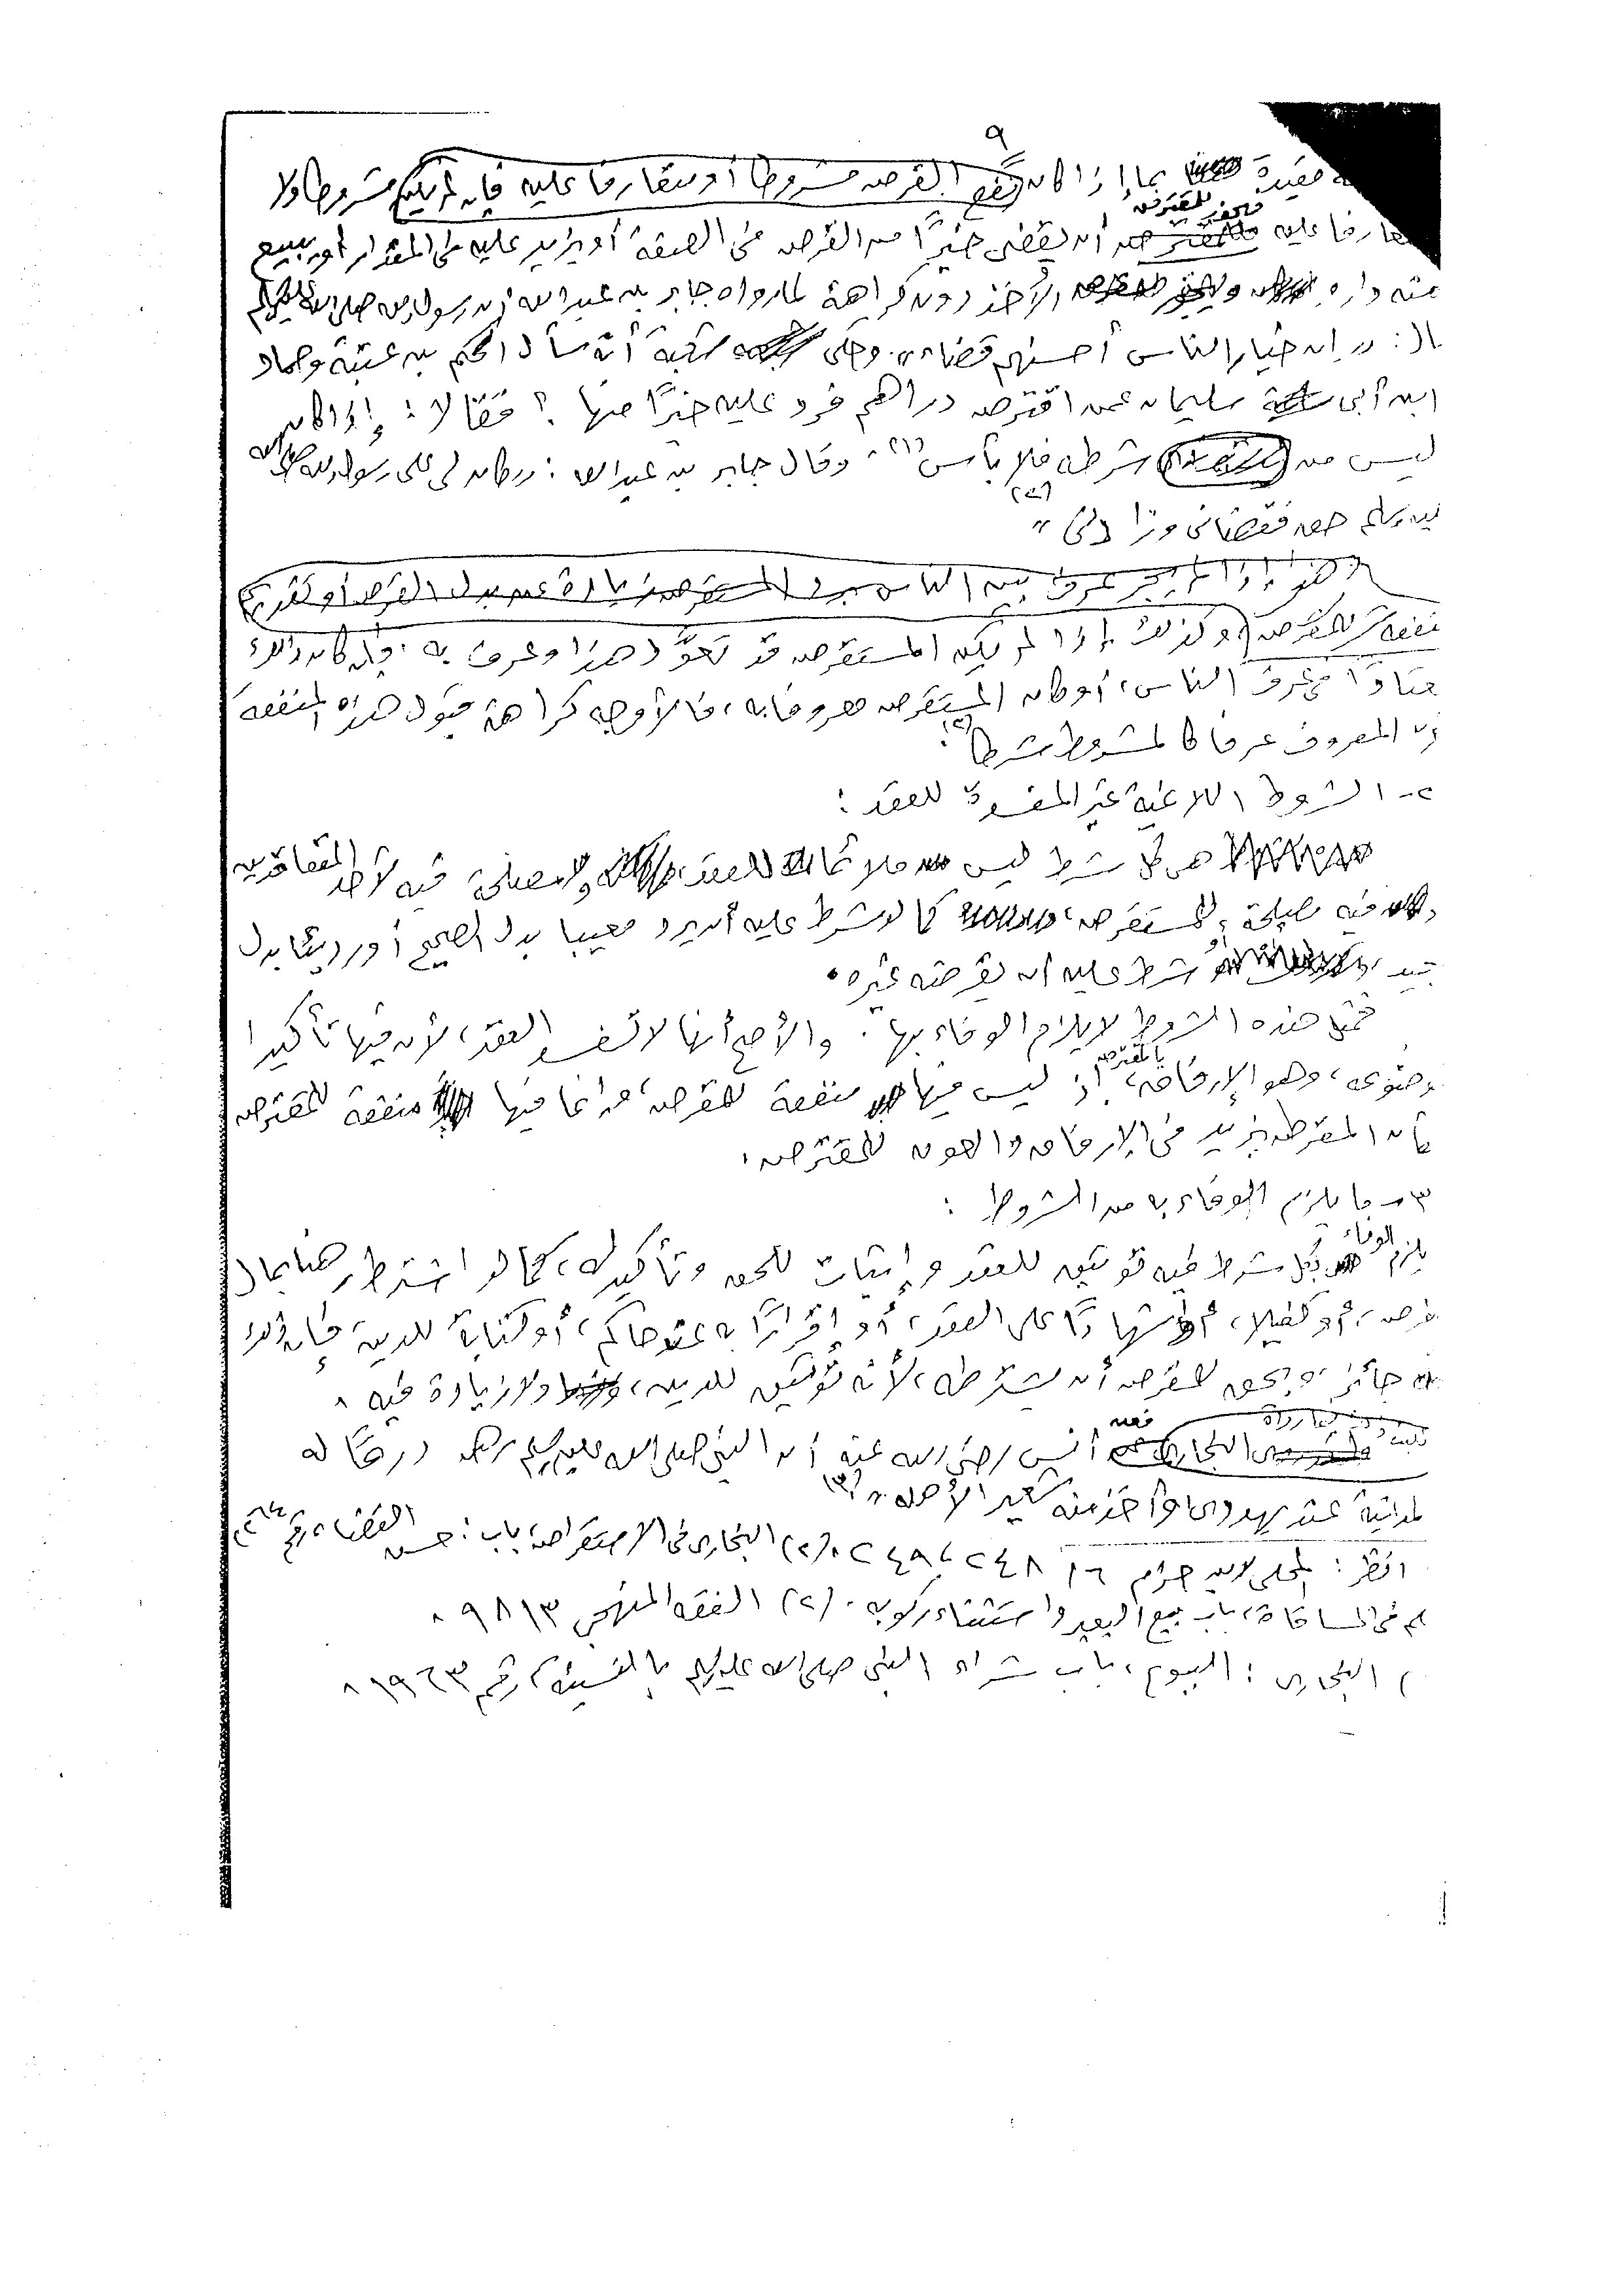 ٩
مقيدة بما إذا كان نفع القرض مشروطاً أو متعارفا عليه فإن لم يكن مشروطا ولا
متعارفا عليه فيجوز للمقترض أن يقضي خيرًا من القرض في الصفة أو يزيد عليه في المقدار أو يبيع
منه داره الأخذ دون كراهة لما رواه جابر بن عبدالله أن رسول الله صلى الله عليه وسلم
ال: « إن خيار الناس أحسنهم قضاء ». وحكى شعبة أنه سأل الحكم بن عتيبة وحماد
ابن أبي سليمان عمن اقترض دراهم فرد عليه خيرًا منها ؟ فقالا : إذا كان
ليس من شرطه فلا بأس (١). وقال جابر بن عبدالله : « كان لي على رسول الله صلى الله
عليه وسلم حق فقضاني وزادني » (٢)
وهو إذا لم يجر عرف بين الناس برد المستقرض زيادة عن بدل القرض أو تقديم
منفعة للمقرض، وكذلك إذا لم يكن المستقرض قد تعوّد هذا وعرف به . فإن كان ذلك
معتادًا في عرف الناس، أو كان المستقرض معروفا به، فالأوجه كراهة قبول هذه المنفعة
لأن المعروف عرفا كالمشروط شرطا (٢).
٢- الشروط اللاغية غير المفسدة للعقد :
هي كل شرط ليس ملائما للعقد، ولا مصلحة فيه لأحد المتعاقدين
فيه مصلحة للمستقرض، كما لو شرط عليه أن يرد معيبا بدل الصحيح أو رديئا بدل
جيد، أو شرط عليه أن يقرضه غيره.
فمثل هذه الشروط لا يلزم الوفاء بها . والأصح أنها لا تفسد العقد، لأن فيها تأكيدا
وهو الإرفاق بالمقترض، إذ ليس فيها منفعة للمقرض، وإنما فيها منفعة للمقترض
فكأن المقرض يزيد في الإرفاق والعون للمقترض.
٣- ما يلزم الوفاء به من الشروط :
يلزم الوفاء بكل شرط فيه توثيق للعقد وإثبات للحق وتأكيد له، كما لو اشترط رهنا بمال
القرض، أو كفيلا، أو إشهادًا على العقد، أو إقرارًا به عند حاكم، أو كتابة للدين، فإن ذلك
جائز، ويحق للمقرض أن يشترطه، لأنه توثيق للدين، ولا زيادة فيه.
البخاري فعن أنس رضي الله عنه أن النبي صلى الله عليه وسلم رهن درعًا له
بالمدينة عند يهودي وأخذ منه شعيرا لأهله » (٣)
انظر : المحلى لابن حزم ٦/ ٢٤٨، ٢٤٩٨. (٢) البخاري في الاستقراض، باب : حسن القضاء، رقم
مسلم في المساقاة، باب بيع البعير واستثناء ركوبه. (٢) الفقه المنهجي ٣/ ٩٨.
) البخاري : البيوع، باب شراء النبي صلى الله عليه وسلم بالنسيئة، رقم ١٩٦٣.